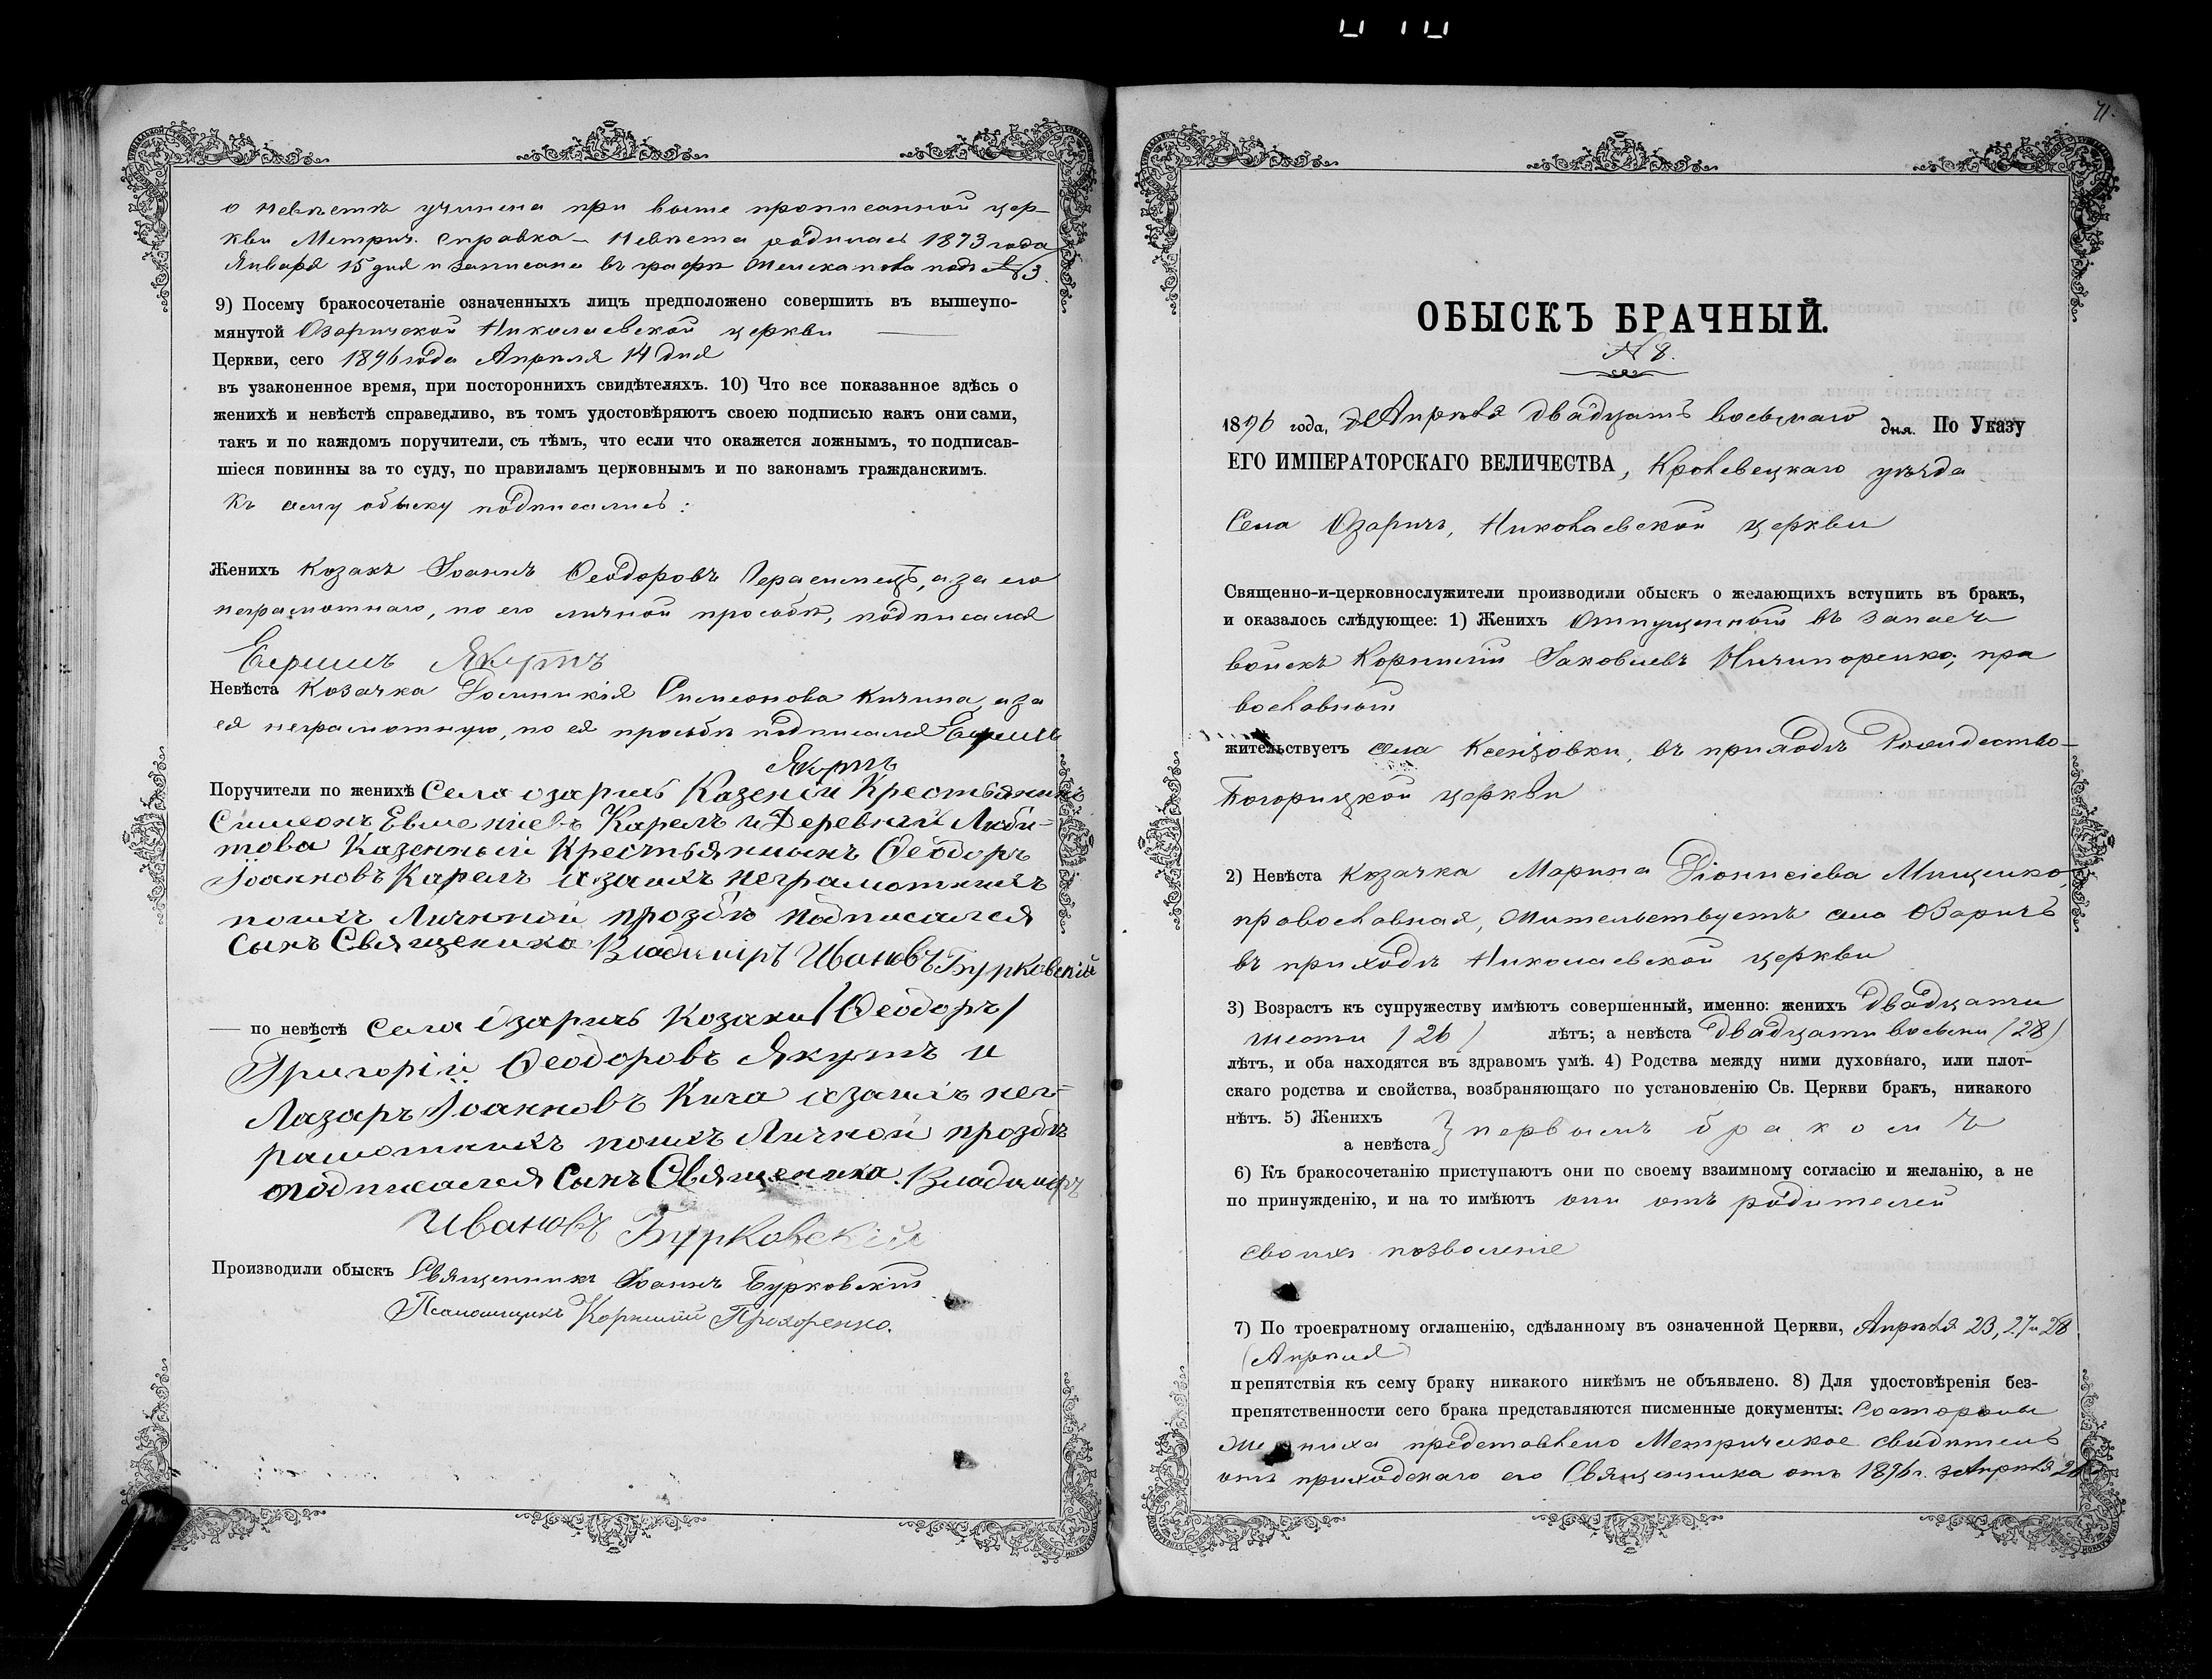 о невѣстѣ учинена при выше прописанной цер-
кви Метрич. справка – Невѣста родилась 1873 года
Января 15 дня и записана въ графѣ женска пола подъ №3.
9) Посему бракосочетаніе означенныхъ лицъ предположено совершить въ вышеупо-
мянутой Озаричской Николаевской церкви
Церкви, сего 1896 года Апрѣля 14 дня
въ узаконенное время, при постороннихъ свидѣтеляхъ. 10) Что все показанное здѣсь о
женихѣ и невѣстѣ справедливо, въ томъ удостовѣряютъ своею подписью какъ они сами,
такъ и по каждомъ поручители, съ тѣмъ, что если что окажется ложнымъ, то подписав-
шіеся повинны за то суду, по правиламъ церковнымъ и по законамъ гражданскимъ.
Къ сему обыску подписались:
Женихъ Козакъ Іоаннъ Ѳеодоровъ Герасимецъ, а за его
неграмотнаго, по его личной просьбѣ, подписался
Ефимъ Якутъ
Невѣста Козачка Гликерія Симеонова Кичина, а за
ея неграмотную, по ея просьбѣ подписался Ефимъ
Якутъ
Поручители по женихѣ Села озаричь Казеній Крестьянинъ
Симеонъ Евменіевъ Карель и Деревній Люби-
това Казенный Крестьянынъ Ѳеодоръ
Іоанновъ Карель а заихъ неграмотнихъ
поихъ Личнной прозбѣ подписался
Сынъ Священика Владиміръ Ивановъ Бурковскій
— по невѣстѣ Села Озаричь Козаки /Ѳеодоръ/
Григорій Ѳеодоровъ Якутъ и
Лазарь Іоанновъ Кича азаихъ нег-
рамотнихъ поихъ Личной прозбѣ
подписался Сынъ Священика Владиміръ
Ивановъ Бурковскій
Производили обыскъ Священникъ Іоаннъ Бурковскій
Псаломщикъ Корнилій Прохоренко.
71.
ОБЫСКЪ БРАЧНЫЙ.
№ 8.
1896 года, Апрѣля двадцать восьмаго дня. По Указу
ЕГО ИМПЕРАТОРСКАГО ВЕЛИЧЕСТВА, Кролевецкаго уѣзда
Села Озаричъ, Николаевской церкви
Священно-и-церковнослужители производили обыскъ о желающихъ вступить въ бракъ,
и оказалось слѣдующее: 1) Женихъ Отпущенный въ запасъ
войскъ Корнилій Іаковлевъ Ничипоренко, пра
вославный
жительствуетъ села Ксензовки, въ приходѣ Рождество-
Богорицкой церкви
2) Невѣста Козачка Марина Діонисіева Мищенко,
православная, жительствуетъ село Озаричъ
въ приходѣ Николаевской церкви
3) Возрастъ къ супружеству имѣютъ совершенный, именно: женихъ двадцати
шести /26/ лѣтъ; а невѣста двадцати восьми /28/
лѣтъ, и оба находятся въ здравомъ умѣ. 4) Родства между ними духовнаго, или плот-
скаго родства и свойства, возбраняющаго по установленію Св. Церкви бракъ, никакого
нѣтъ. 5) Женихъ
а невѣста } первымъ бракомъ
6) Къ бракосочетанію приступаютъ они по своему взаимному согласію и желанію, а не
по принужденію, и на то имѣютъ они отъ родителей
своихъ позволеніе
7) По троекратному оглашенію, сдѣланному въ означенной Церкви, Апрѣля 23, 27 и 28
(Апрѣля)
препятствія къ сему браку никакого никѣмъ не объявлено. 8) Для удостовѣренія без-
препятственности сего брака представляются писменные документы: Состороны
жениха представлено Метрическое свидѣтель
отъ приходскаго его Священника отъ 1896 г. Апрѣля